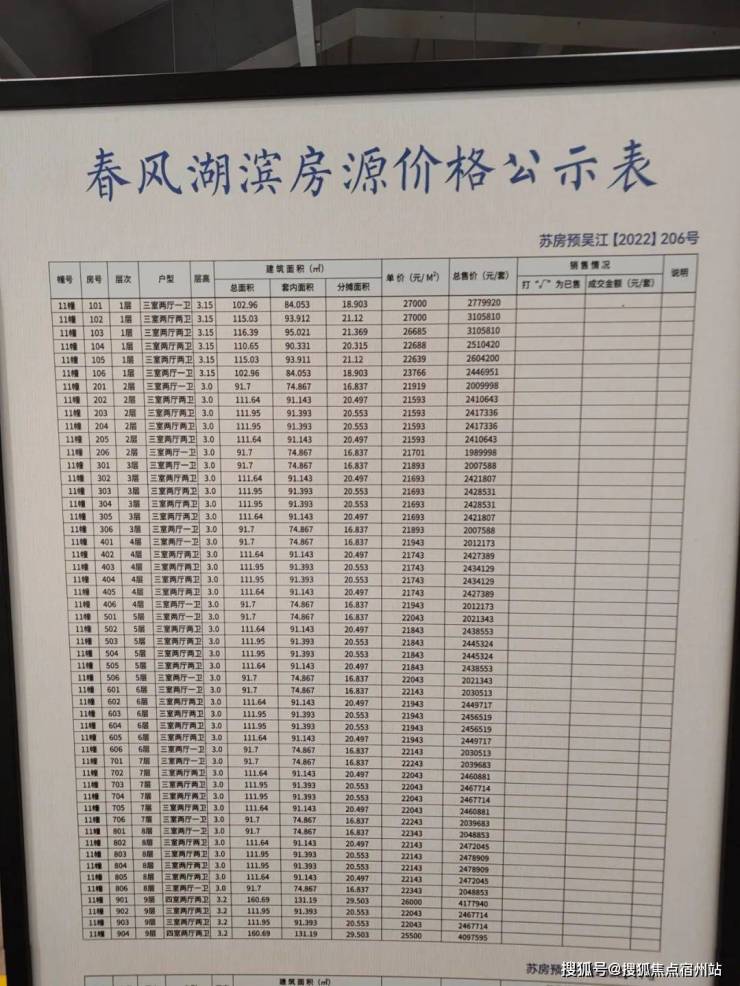 春风湖滨房源价格公示表
苏房预吴江【2022】206号
幢号 房号 层次 户型 层高 建筑面积（㎡） 单价（元/M²） 总售价（元/套） 销售情况 说明
总面积 套内面积 分摊面积 打“√”为已售 成交金额（元/套）
11幢 101 1层 三室两厅一卫 3.15 102.96 84.053 18.903 27000 2779920
11幢 102 1层 三室两厅两卫 3.15 115.03 93.912 21.12 27000 3105810
11幢 103 1层 三室两厅两卫 3.15 116.39 95.021 21.369 26685 3105810
11幢 104 1层 三室两厅两卫 3.15 110.65 90.331 20.315 22688 2510420
11幢 105 1层 三室两厅两卫 3.15 115.03 93.911 21.12 22639 2604200
11幢 106 1层 三室两厅一卫 3.15 102.96 84.053 18.903 23766 2446951
11幢 201 2层 三室两厅一卫 3.0 91.7 74.867 16.837 21919 2009998
11幢 202 2层 三室两厅两卫 3.0 111.64 91.143 20.497 21593 2410643
11幢 203 2层 三室两厅两卫 3.0 111.95 91.393 20.553 21593 2417336
11幢 204 2层 三室两厅两卫 3.0 111.95 91.393 20.553 21593 2417336
11幢 205 2层 三室两厅两卫 3.0 111.64 91.143 20.497 21593 2410643
11幢 206 2层 三室两厅一卫 3.0 91.7 74.867 16.837 21701 1989998
11幢 301 3层 三室两厅一卫 3.0 91.7 74.867 16.837 21893 2007588
11幢 302 3层 三室两厅两卫 3.0 111.64 91.143 20.497 21693 2421807
11幢 303 3层 三室两厅两卫 3.0 111.95 91.393 20.553 21693 2428531
11幢 304 3层 三室两厅两卫 3.0 111.95 91.393 20.553 21693 2428531
11幢 305 3层 三室两厅两卫 3.0 111.64 91.143 20.497 21693 2421807
11幢 306 3层 三室两厅一卫 3.0 91.7 74.867 16.837 21893 2007588
11幢 401 4层 三室两厅一卫 3.0 91.7 74.867 16.837 21943 2012173
11幢 402 4层 三室两厅两卫 3.0 111.64 91.143 20.497 21743 2427389
11幢 403 4层 三室两厅两卫 3.0 111.95 91.393 20.553 21743 2434129
11幢 404 4层 三室两厅两卫 3.0 111.95 91.393 20.553 21743 2434129
11幢 405 4层 三室两厅两卫 3.0 111.64 91.143 20.497 21743 2427389
11幢 406 4层 三室两厅一卫 3.0 91.7 74.867 16.837 21943 2012173
11幢 501 5层 三室两厅一卫 3.0 91.7 74.867 16.837 22043 2021343
11幢 502 5层 三室两厅两卫 3.0 111.64 91.143 20.497 21843 2438553
11幢 503 5层 三室两厅两卫 3.0 111.95 91.393 20.553 21843 2445324
11幢 504 5层 三室两厅两卫 3.0 111.95 91.393 20.553 21843 2445324
11幢 505 5层 三室两厅两卫 3.0 111.64 91.143 20.497 21843 2438553
11幢 506 5层 三室两厅一卫 3.0 91.7 74.867 16.837 22043 2021343
11幢 601 6层 三室两厅一卫 3.0 91.7 74.867 16.837 22143 2030513
11幢 602 6层 三室两厅两卫 3.0 111.64 91.143 20.497 21943 2449717
11幢 603 6层 三室两厅两卫 3.0 111.95 91.393 20.553 21943 2456519
11幢 604 6层 三室两厅两卫 3.0 111.95 91.393 20.553 21943 2456519
11幢 605 6层 三室两厅两卫 3.0 111.64 91.143 20.497 21943 2449717
11幢 606 6层 三室两厅一卫 3.0 91.7 74.867 16.837 22143 2030513
11幢 701 7层 三室两厅一卫 3.0 91.7 74.867 16.837 22243 2039683
11幢 702 7层 三室两厅两卫 3.0 111.64 91.143 20.497 22043 2460881
11幢 703 7层 三室两厅两卫 3.0 111.95 91.393 20.553 22043 2467714
11幢 704 7层 三室两厅两卫 3.0 111.95 91.393 20.553 22043 2467714
11幢 705 7层 三室两厅两卫 3.0 111.64 91.143 20.497 22043 2460881
11幢 706 7层 三室两厅一卫 3.0 91.7 74.867 16.837 22243 2039683
11幢 801 8层 三室两厅一卫 3.0 91.7 74.867 16.837 22343 2048853
11幢 802 8层 三室两厅两卫 3.0 111.64 91.143 20.497 22143 2472045
11幢 803 8层 三室两厅两卫 3.0 111.95 91.393 20.553 22143 2478909
11幢 804 8层 三室两厅两卫 3.0 111.95 91.393 20.553 22143 2478909
11幢 805 8层 三室两厅两卫 3.0 111.64 91.143 20.497 22143 2472045
11幢 806 8层 三室两厅一卫 3.0 91.7 74.867 16.837 22343 2048853
11幢 901 9层 四室两厅两卫 3.2 160.69 131.19 29.503 26000 4177940
11幢 902 9层 三室两厅两卫 3.2 111.95 91.393 20.553 22043 2467714
11幢 903 9层 三室两厅两卫 3.2 111.95 91.393 20.553 22043 2467714
11幢 904 9层 四室两厅两卫 3.2 160.69 131.19 29.503 25500 4097595
苏房预
建筑面积（㎡）
搜狐号@搜狐焦点宿州站